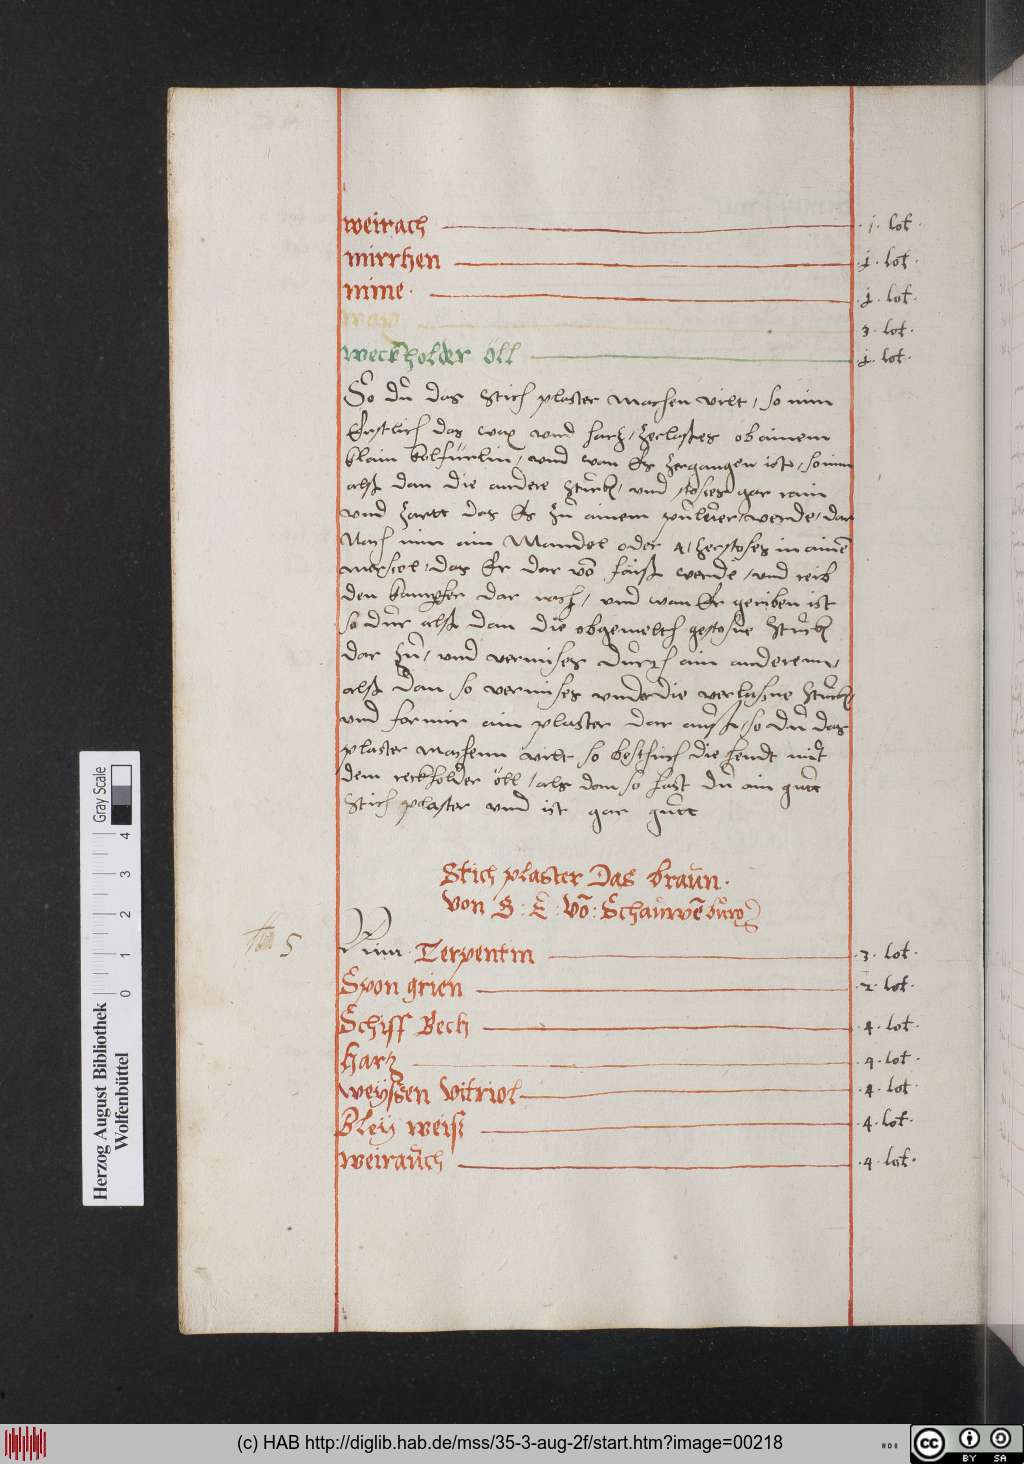 weirach .j. lot.
mirrhen .j. lot.
mime .j. lot.
wax 3. lot.
weckholder öll .j. lot.
So dŭ das Stich plaster machen vilt, so nim
Erstlich das wax vnd hartz, zerlasses ob ainem
klain kolfürlin, vnd wan Es zergangen ist, so nim
alsß dan die andere Stŭckh, vnd stoses gar rain
vnd zartt das Es zŭ ainem pŭluer werde, dar
Nach nim ain Mandel oder 4, zerstoses in ainē
merscel, das Er dar vō faist werde, vnd reib
den kampfer dar nach, vnd wan Er geriben ist
so dŭe alsß dan die obgemelth gestosne Stŭckh
dar Zŭ, vnd vermises dŭrch ain anderem,
alsß dan so vermises vnder die verlasne Stŭckh,
vnd formir ain plaster dar aŭß, so dŭ das
plaster machenn vilt so bestraich die hendt mit
dem reckholder öll, als dan so hast dŭ ain gŭtt
Stich plaster vnnd ist gar gŭtt
Stich plaster Das braŭn.
von G: E: vō: Schaŭwēbŭrg
5
Nim Terpentin .3. lot.
Spon grien .2. lot.
Schiff Bech .4. lot.
Hartz .4. lot.
weyssen vitriol .4. lot.
Bley weiß .4. lot.
weiraŭch .4. lot.
Herzog August Bibliothek
Wolfenbüttel
0 1 2 3 4
Gray Scale
(c) HAB http://diglib.hab.de/mss/35-3-aug-2f/start.htm?image=00218
cc BY SA